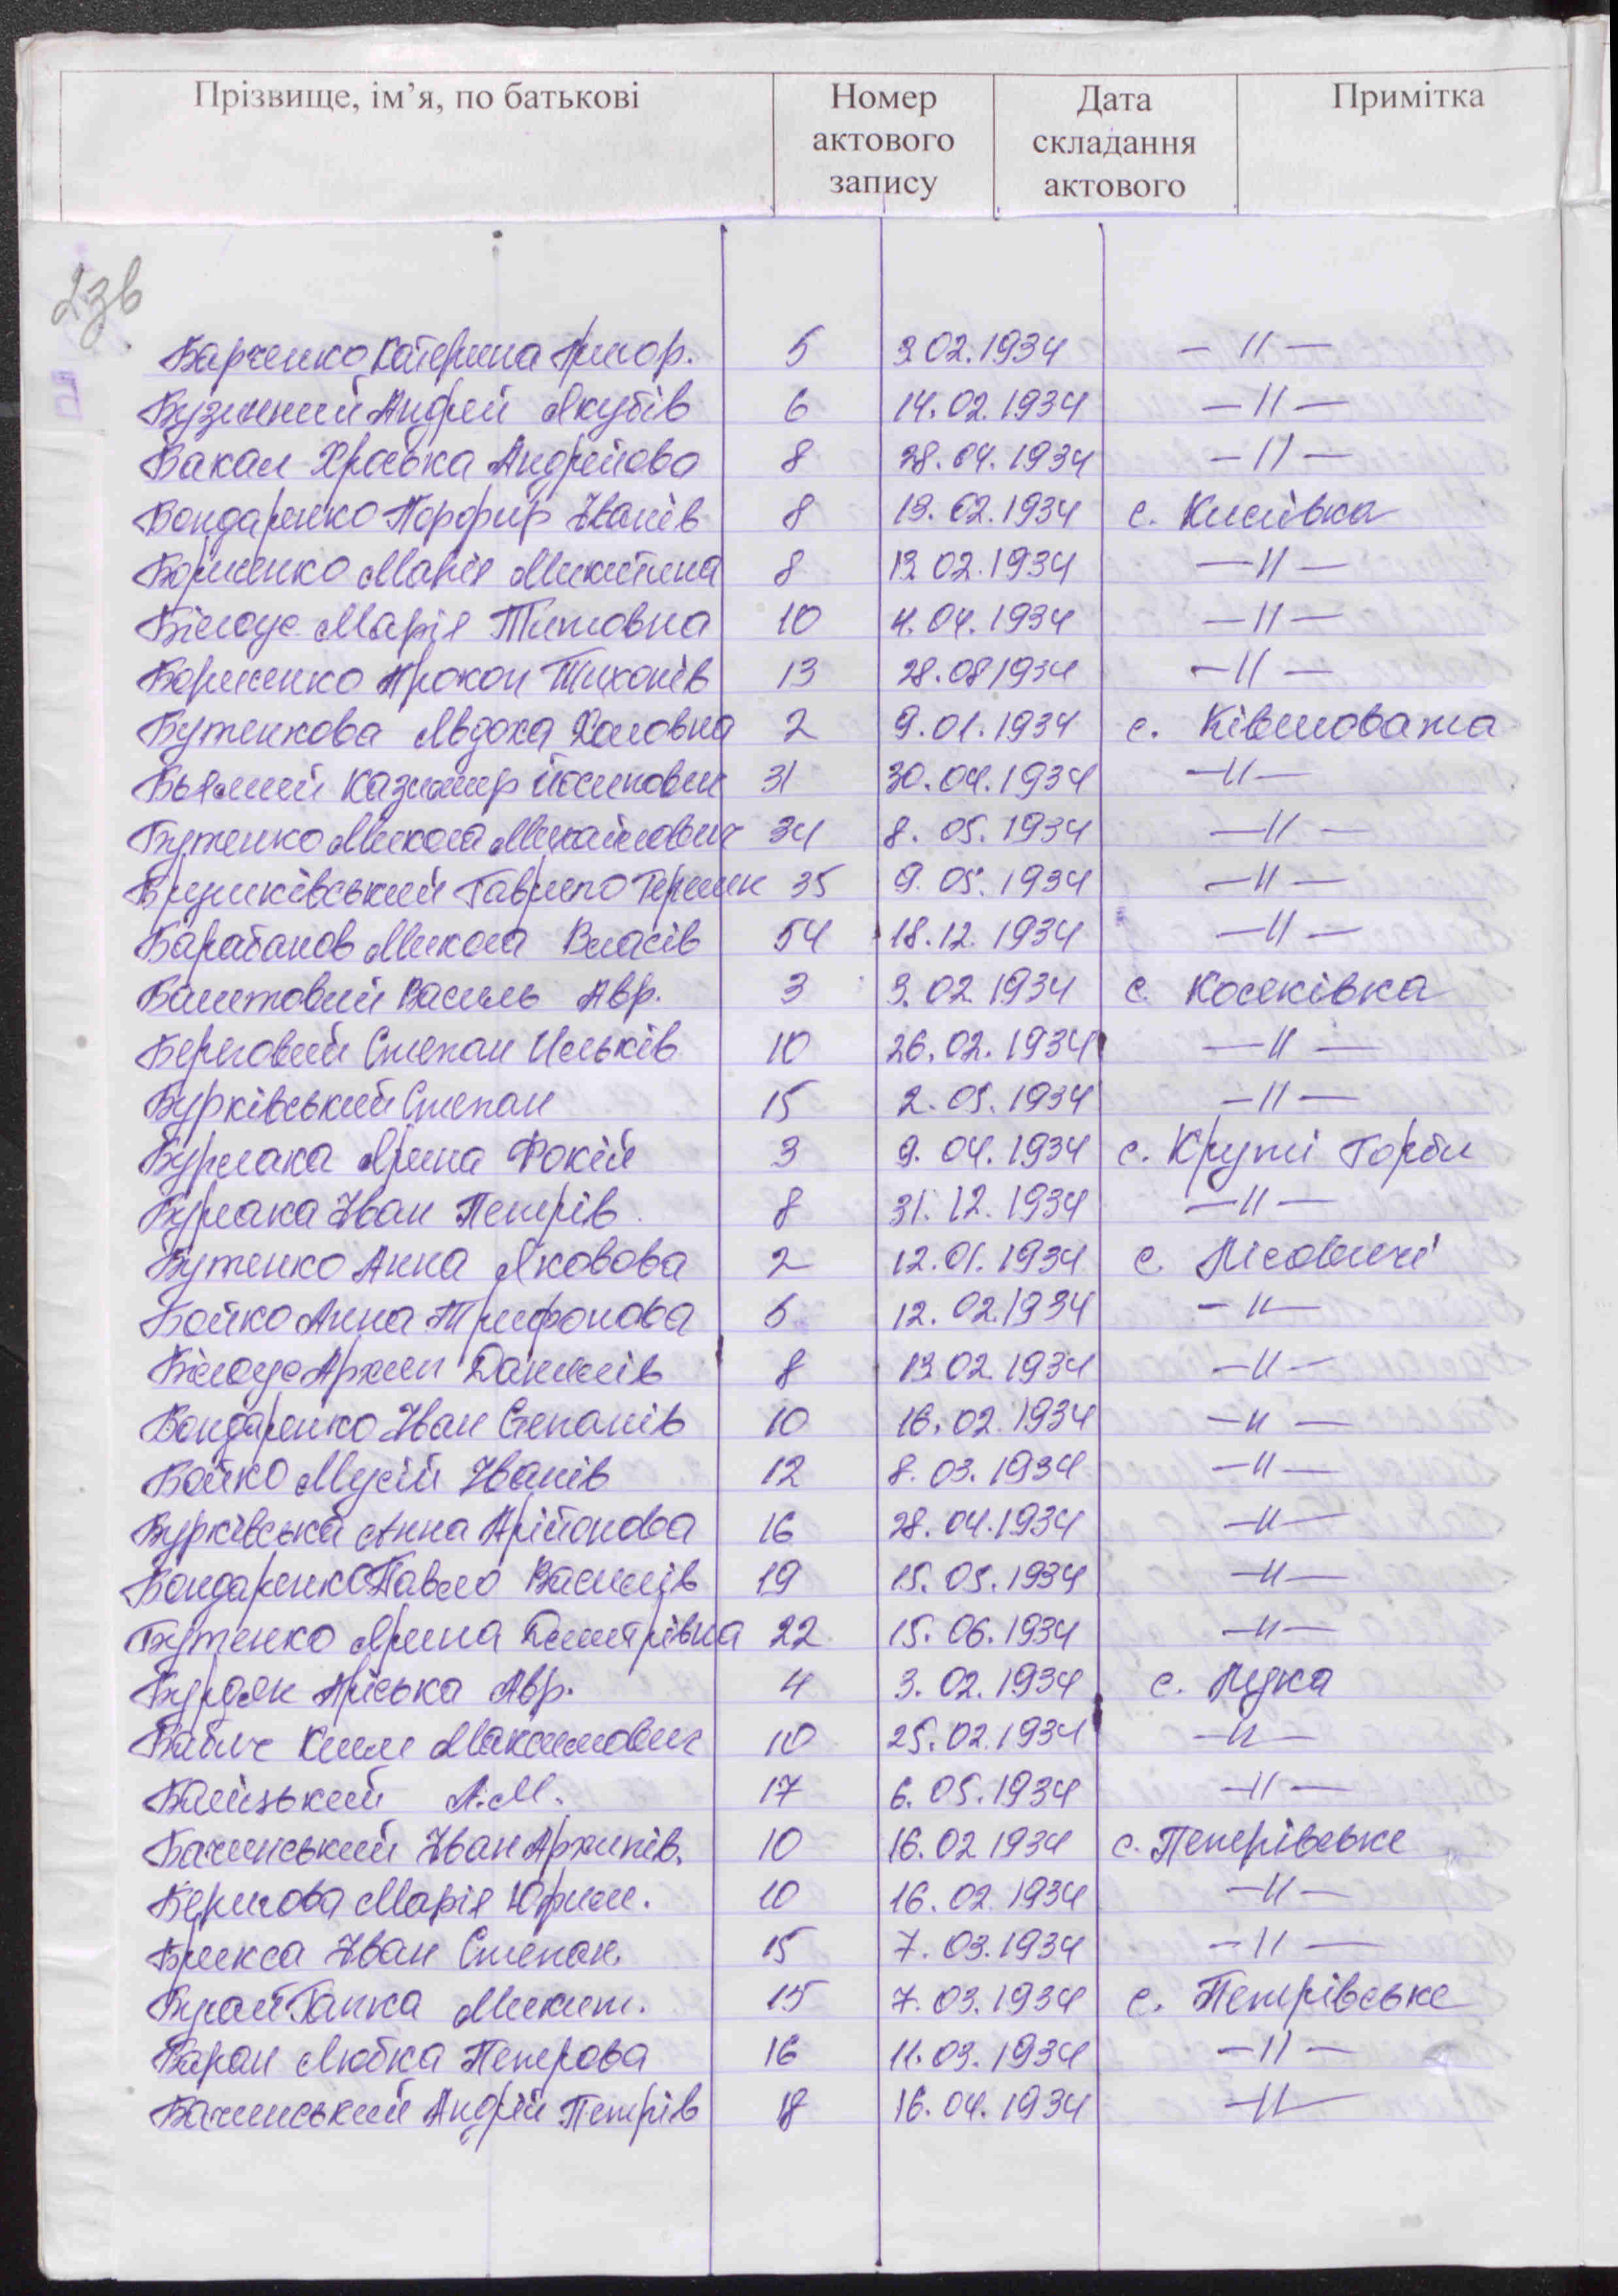 Прізвище, ім’я, по батькові | Номер актового запису | Дата складання актового | Примітка
23в
Барченко Катерина Григор. 5 3 02.1934 — 〃 —
Бузинний Андрей Якубів 6 14.02.1934 — 〃 —
Бакал Хроська Андрійова 8 28.04.1934 — 〃 —
Бондаренко Порфир Іванів 8 13.02.1934 с. Кислівка
Борисенко Марія Микитина 8 13 02.1934 — 〃 —
Білоус Марія Титовна 10 4.04.1934 — 〃 —
Борисенко Прокоп Тихонів 13 28.08 1934 — 〃 —
Бутенкова Явдоха 2 9.01.1934 с. Ківшовата
Казимир Йосипович 31 30.04.1934 — 〃 —
Бутенко Микола Михайлович 34 8.05.1934 — 〃 —
Гаврило 35 9.05.1934 — 〃 —
Барабанов Микола Власів 54 18.12.1934 — 〃 —
Баштовий Василь Авр. 3 3.02 1934 с. Косяківка
Береговий Степан Ильків 10 26.02.1934 — 〃 —
Бурківський Степан 15 2.05.1934 — 〃 —
Бурлака Ярина Фокій 3 9.04.1934 с. Круті Горби
Бурлака Іван Петрів 8 31.12.1934 — 〃 —
Бутенко Анна Яковова 2 12.01.1934 с. Лісовичі
Бойко Анна Трифонова 6 12.02.1934 — 〃 —
Білоус Архип Данилів 8 13 02.1934 — 〃 —
Бондаренко Іван Степанів 10 16.02.1934 — 〃 —
Бойко Мусій Іванів 12 8.03.1934 — 〃 —
Бурківська Анна Арійонова 16 28.04.1934 — 〃 —
Бондаренко Павло Василів 19 15.05.1934 — 〃 —
Бутенко Ярина Дмитрівна 22 15.06.1934 — 〃 —
Бурдяк Пріська Авр. 4 3.02.1934 с. Лука
Бабич Клим Максимович 10 25.02.1934 — 〃 —
А.М. 17 6.05.1934 — 〃 —
Бачинський Іван Архипів. 10 16.02 1934 с. Петрівське
Бергова Марія Юхим. 10 16.02.1934 — 〃 —
Брикса Іван Степан. 15 7.03.1934 — 〃 —
Бугай Ганка Микит. 15 7.03.1934 с. Петрівське
Баран Любка Петрова 16 11.03.1934 — 〃 —
Бачинський Андрій Петрів 18 16.04.1934 — 〃 —